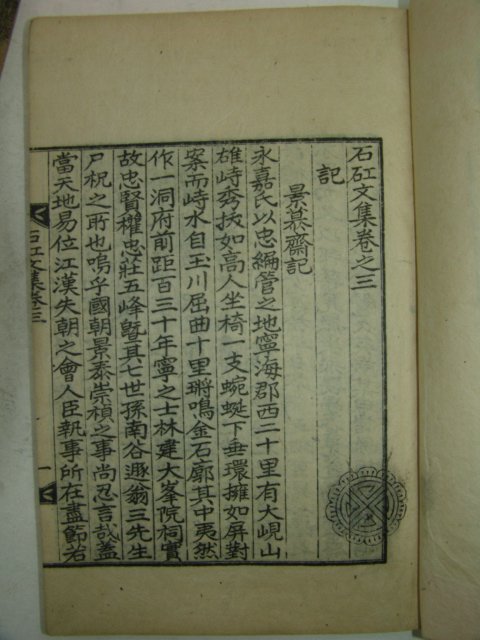 石矼文集卷之三
記
景慕齋記
永嘉氏以忠編管之地寧海郡西二十里有大峴山
雄峙秀拔如高人坐椅一支蜿蜒下垂環擁如屏對
案而峙水自玉川屈曲十里鏘鳴金石廓其中夷然
作一洞府前距百三十年寧之士林建大峯院祠實
故忠賢權忠莊五峰曁其七世孫南谷遯翁三先生
尸祝之所也嗚乎國朝景泰崇禎之事尚忍言哉蓋
當天地易位江漢失朝之會人臣執事所在盡節若
石矼文集卷三
一